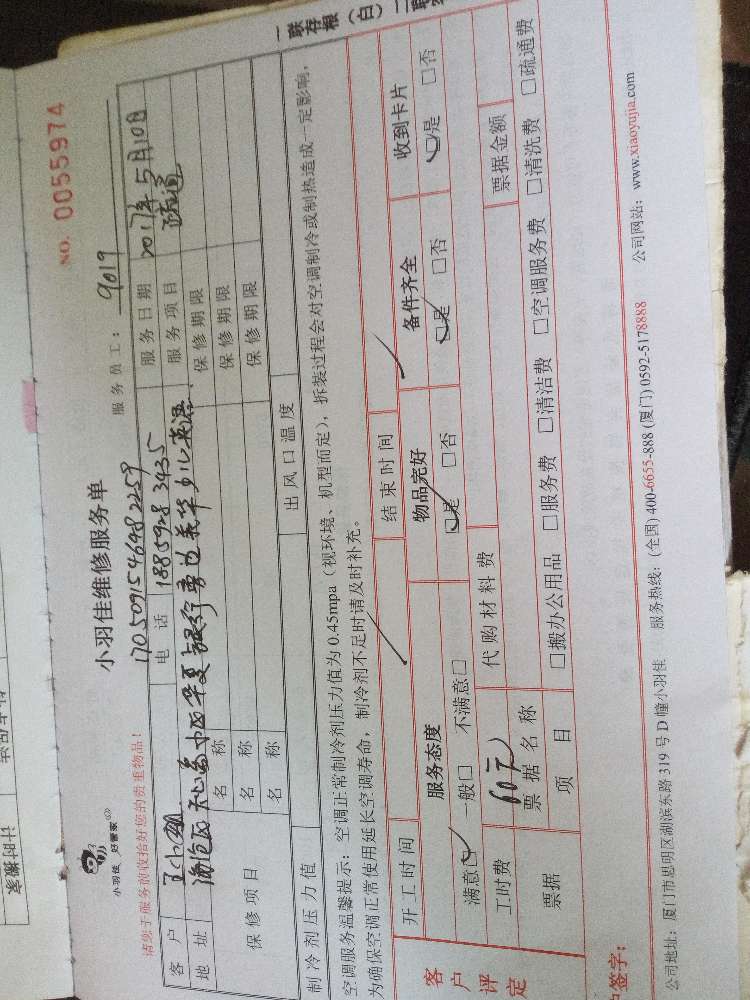 小羽佳维修服务单
NO. 0055974
小羽佳 好管家
170509154698 2259
服务员工: 9019
请您于服务前收拾好您的贵重物品!
客户
电话 188 5928 3435
服务日期 2017年5月10日
地址
华夏银行旁边
少儿英语
服务项目 疏通
保修项目
名称
保修期限
名称
保修期限
名称
保修期限
制冷剂压力值
出风口温度
空调服务温馨提示: 空调正常制冷剂压力值为0.45mpa(视环境、机型而定), 拆装过程会对空调制冷或制热造成一定影响,
为确保空调正常使用延长空调寿命, 制冷剂不足时请及时补充。
客户评定
开工时间
结束时间
服务态度
物品完好
备件齐全
收到卡片
满意□ 一般□ 不满意□
□是 □否
□是 □否
□是 □否
工时费 60元
代购材料费
票据
票据名称
票据金额
项目
□搬办公用品 □服务费 □清洁费 □空调服务费 □清洗费 □疏通费
签字:
公司地址: 厦门市思明区湖滨东路319号D幢小羽佳 服务热线: (全国) 400-6655-888 (厦门) 0592-5178888 公司网站: www.xiaoyujia.com
一联存根(白)二联